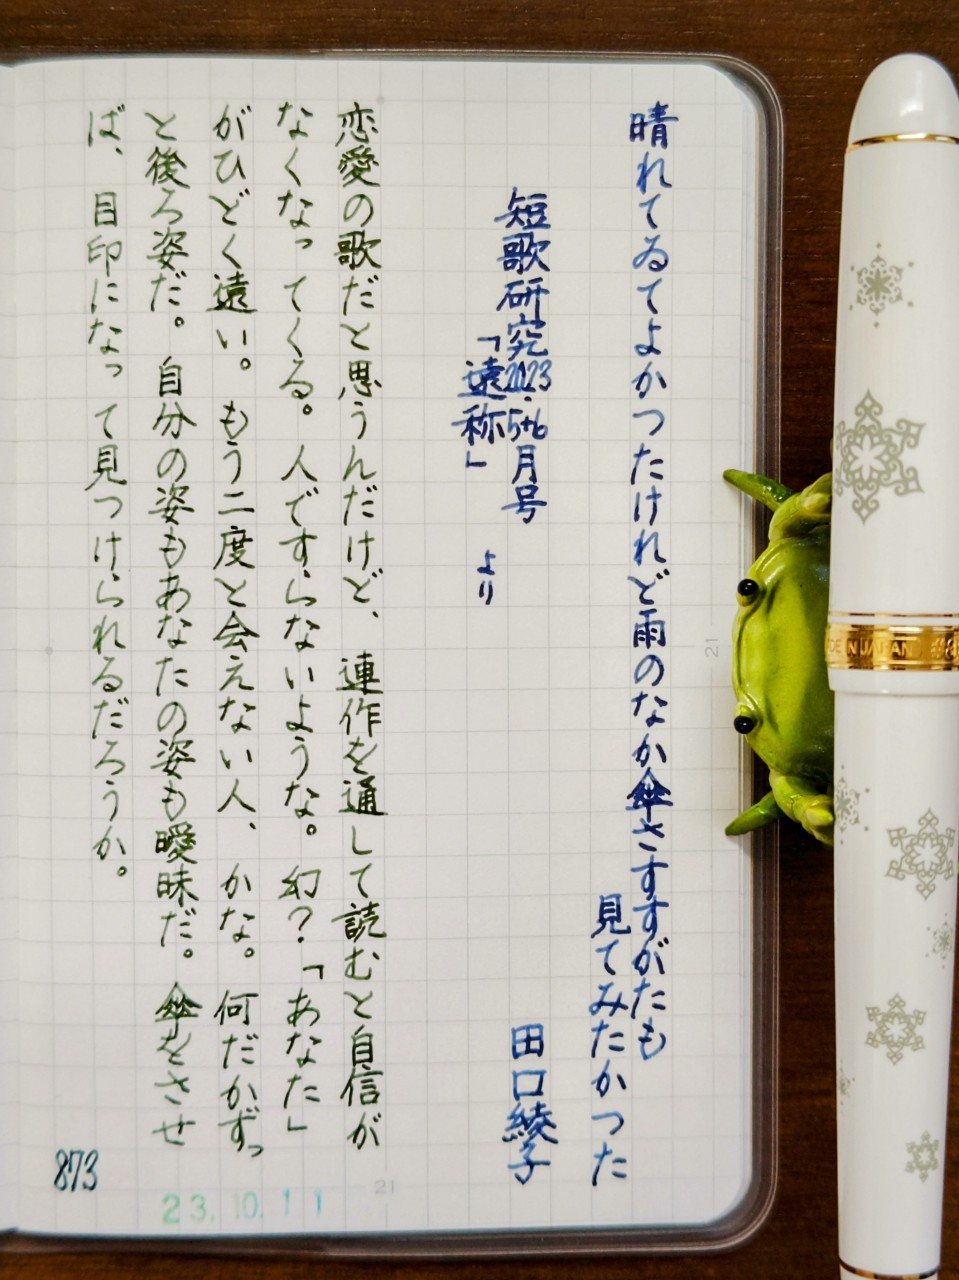 晴れてゐてよかつたけれど雨のなか傘さすすがたも
見てみたかつた
短歌研究2023.5+6月号
「遠称」
より
田口綾子
恋愛の歌だと思うんだけど、連作を通して読むと自信が
なくなってくる。人ですらないような。幻?「あなた」
がひどく遠い。もう二度と会えない人、かな。何だかずっ
と後ろ姿だ。自分の姿もあなたの姿も曖昧だ。傘をさせ
ば、目印になって見つけられるだろうか。
873
23.10.11
21
21
IN JAPAN